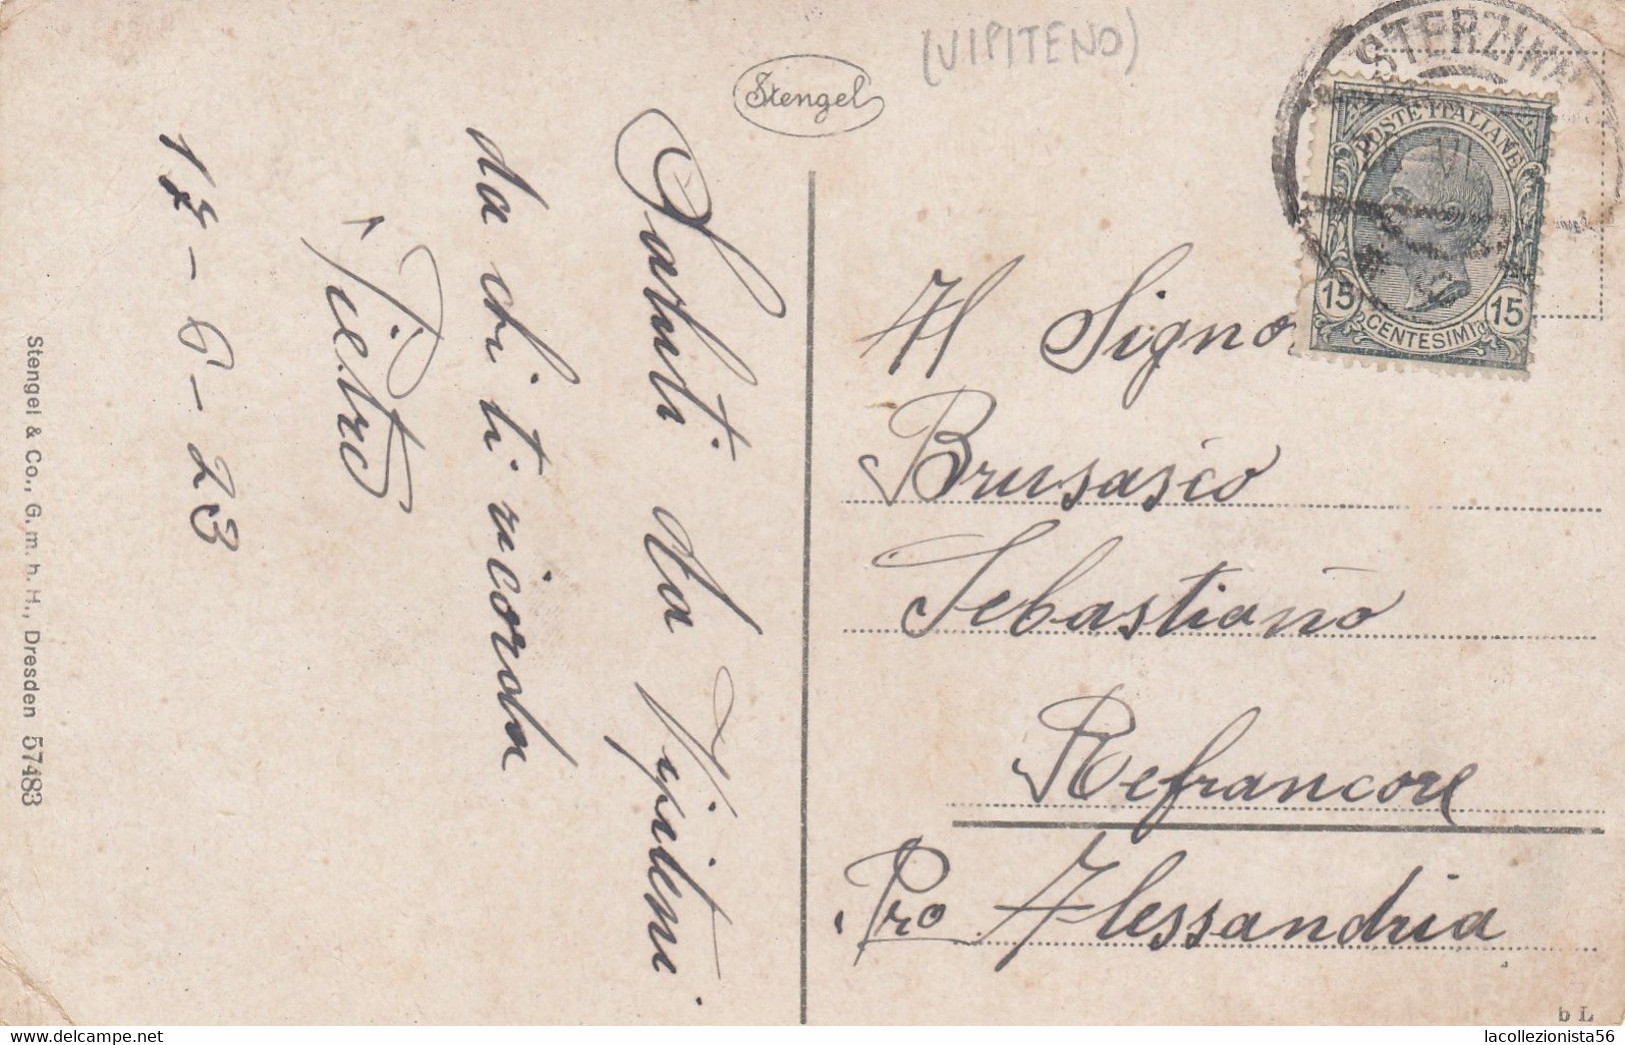 (VIPITENO)
Stengel
STERZING
POSTE ITALIANE
15 15
CENTESIMI
Saluti da Vipiteni
da chi ti ricorda
Pietro
17-6-23
Al Signo
Brusasco
Sebastiano
Refrancore
Pro Alessandria
Stengel & Co., G. m. b. H., Dresden 57483
b L
delcampe.net
lacollezionista56